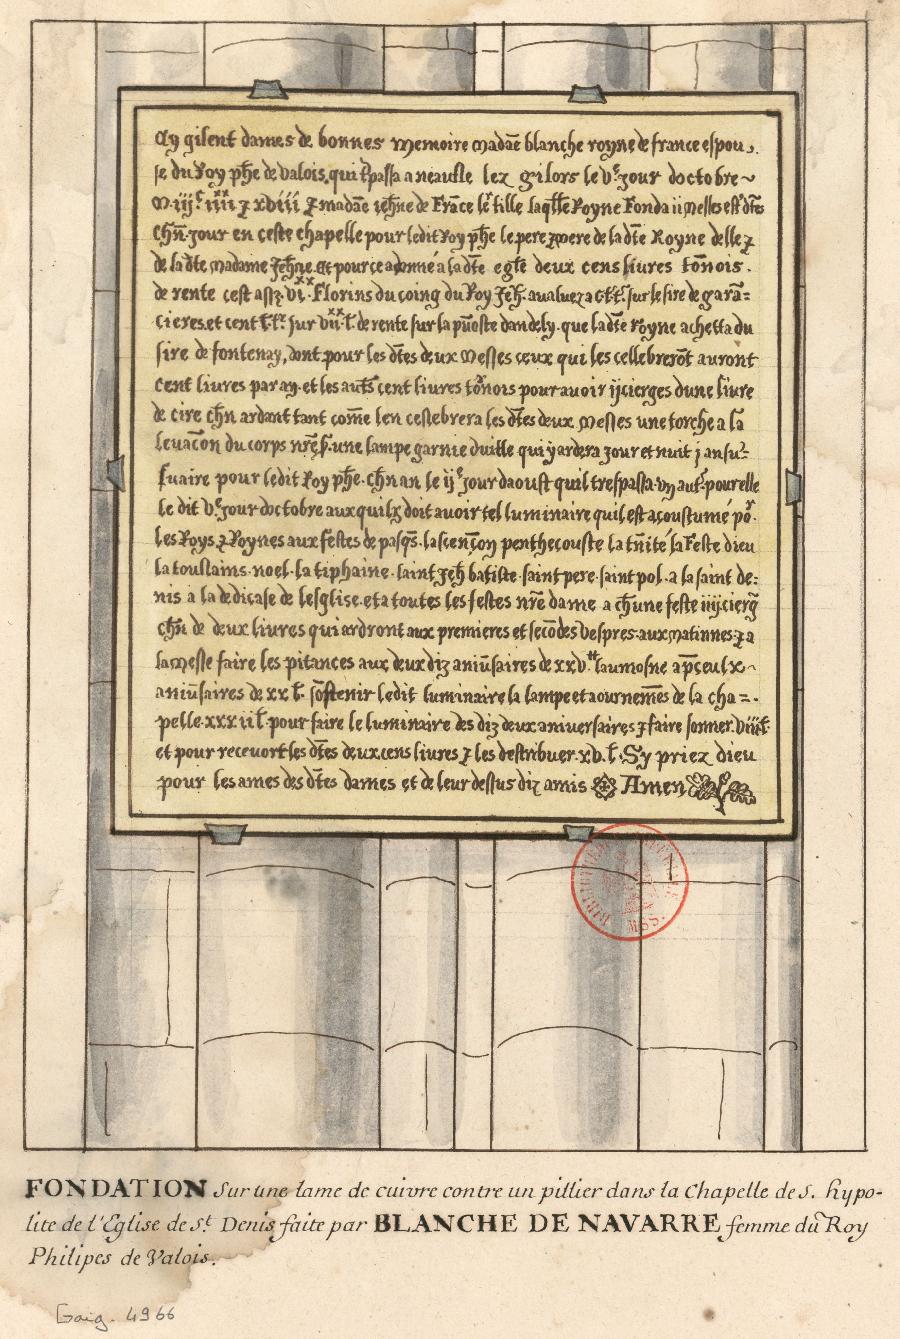 Cy gisent dames de bonnes memoire madāe blanche royne de france espou
se du Roy ph̄e de valois, qui t̄passa a neaufle lez gisors le vᵉ jour doctobre
m. iijᶜ iiijˣˣ ⁊ xviii ⁊ madāe jeh̄ne de Frāce le fille laqlle Royne Fonda ii messes est dt̄es
Ch̄n jour en ceste chapelle pour ledit Roy ph̄e le pere ⁊ mere de la dt̄e Royne delle ⁊
de la dt̄e madame Jeh̄ne. et pour ce a donné a la dt̄e egl̄e deux cens livres tōnois.
de rente cest ass. viˣˣ Florins du coing du Roy Jeh̄. avaluez a sur le sire de garā=
cieres et cent sur viiˣˣ l. de rente sur la p̄voste dandely. que la dt̄e royne achetta du
sire de fontenay, dont pour les dt̄es deux messes ceux qui les cellebrerōt auront
cent livres par ay. et les aut̄s cent livres tōnois pour avoir ij cierges dune livre
de cire ch̄n ardant tant com̄e len cestebrera les dt̄es deux messes une torche a la
levacōn du corps nr̄e une lampe garnie duille qui y ardera jour et nuit j anfu=
fuaire pour ledit Roy ph̄e. ch̄n an le ijᵉ jour daoust quil trespassa. vn aut̄. pour elle
le dit vᵉ jour doctobre aux quilz doit avoir tel luminaire quil est acoustumé poʳ.
les Roys ⁊ Roynes aux festes de pasq̄s. lascençon penthecouste la tn̄ité la Feste dieu
la toussains. noel. la tiphaine. saint Jeh̄ batiste. saint pere. saint pol. a la saint de=
nis a la dedicase de lesglise. et a toutes les festes nr̄e dame a ch̄une feste iiij cierḡ
ch̄n de deux livres qui ardront aux premieres et secōdes vespres. aux matinnes ⁊ a
la messe faire les pitances aux deux diz aniūsaires de xxv.ᵗᵗ laumosne ap̄ceulx
aniūsaires de xx l. soustenir ledit luminaire la lampe et aournemēs de la cha=
pelle. xxxii l. pour faire le luminaire des diz deux aniversaires ⁊ faire sonner. viii l.
et pour recevoir les dt̄es deux cens livres ⁊ les destribuer. xv. l. Sy priez dieu
pour les ames des dt̄es dames et de leur dessus diz amis Amen
BIBLIOTHEQUE
MSS.
FONDATION sur une lame de cuivre contre un pillier dans la Chapelle de S. hypo-
lite de l'Eglise de St. Denis faite par BLANCHE DE NAVARRE femme du Roy
Philipes de Valois.
Gaig. 4966